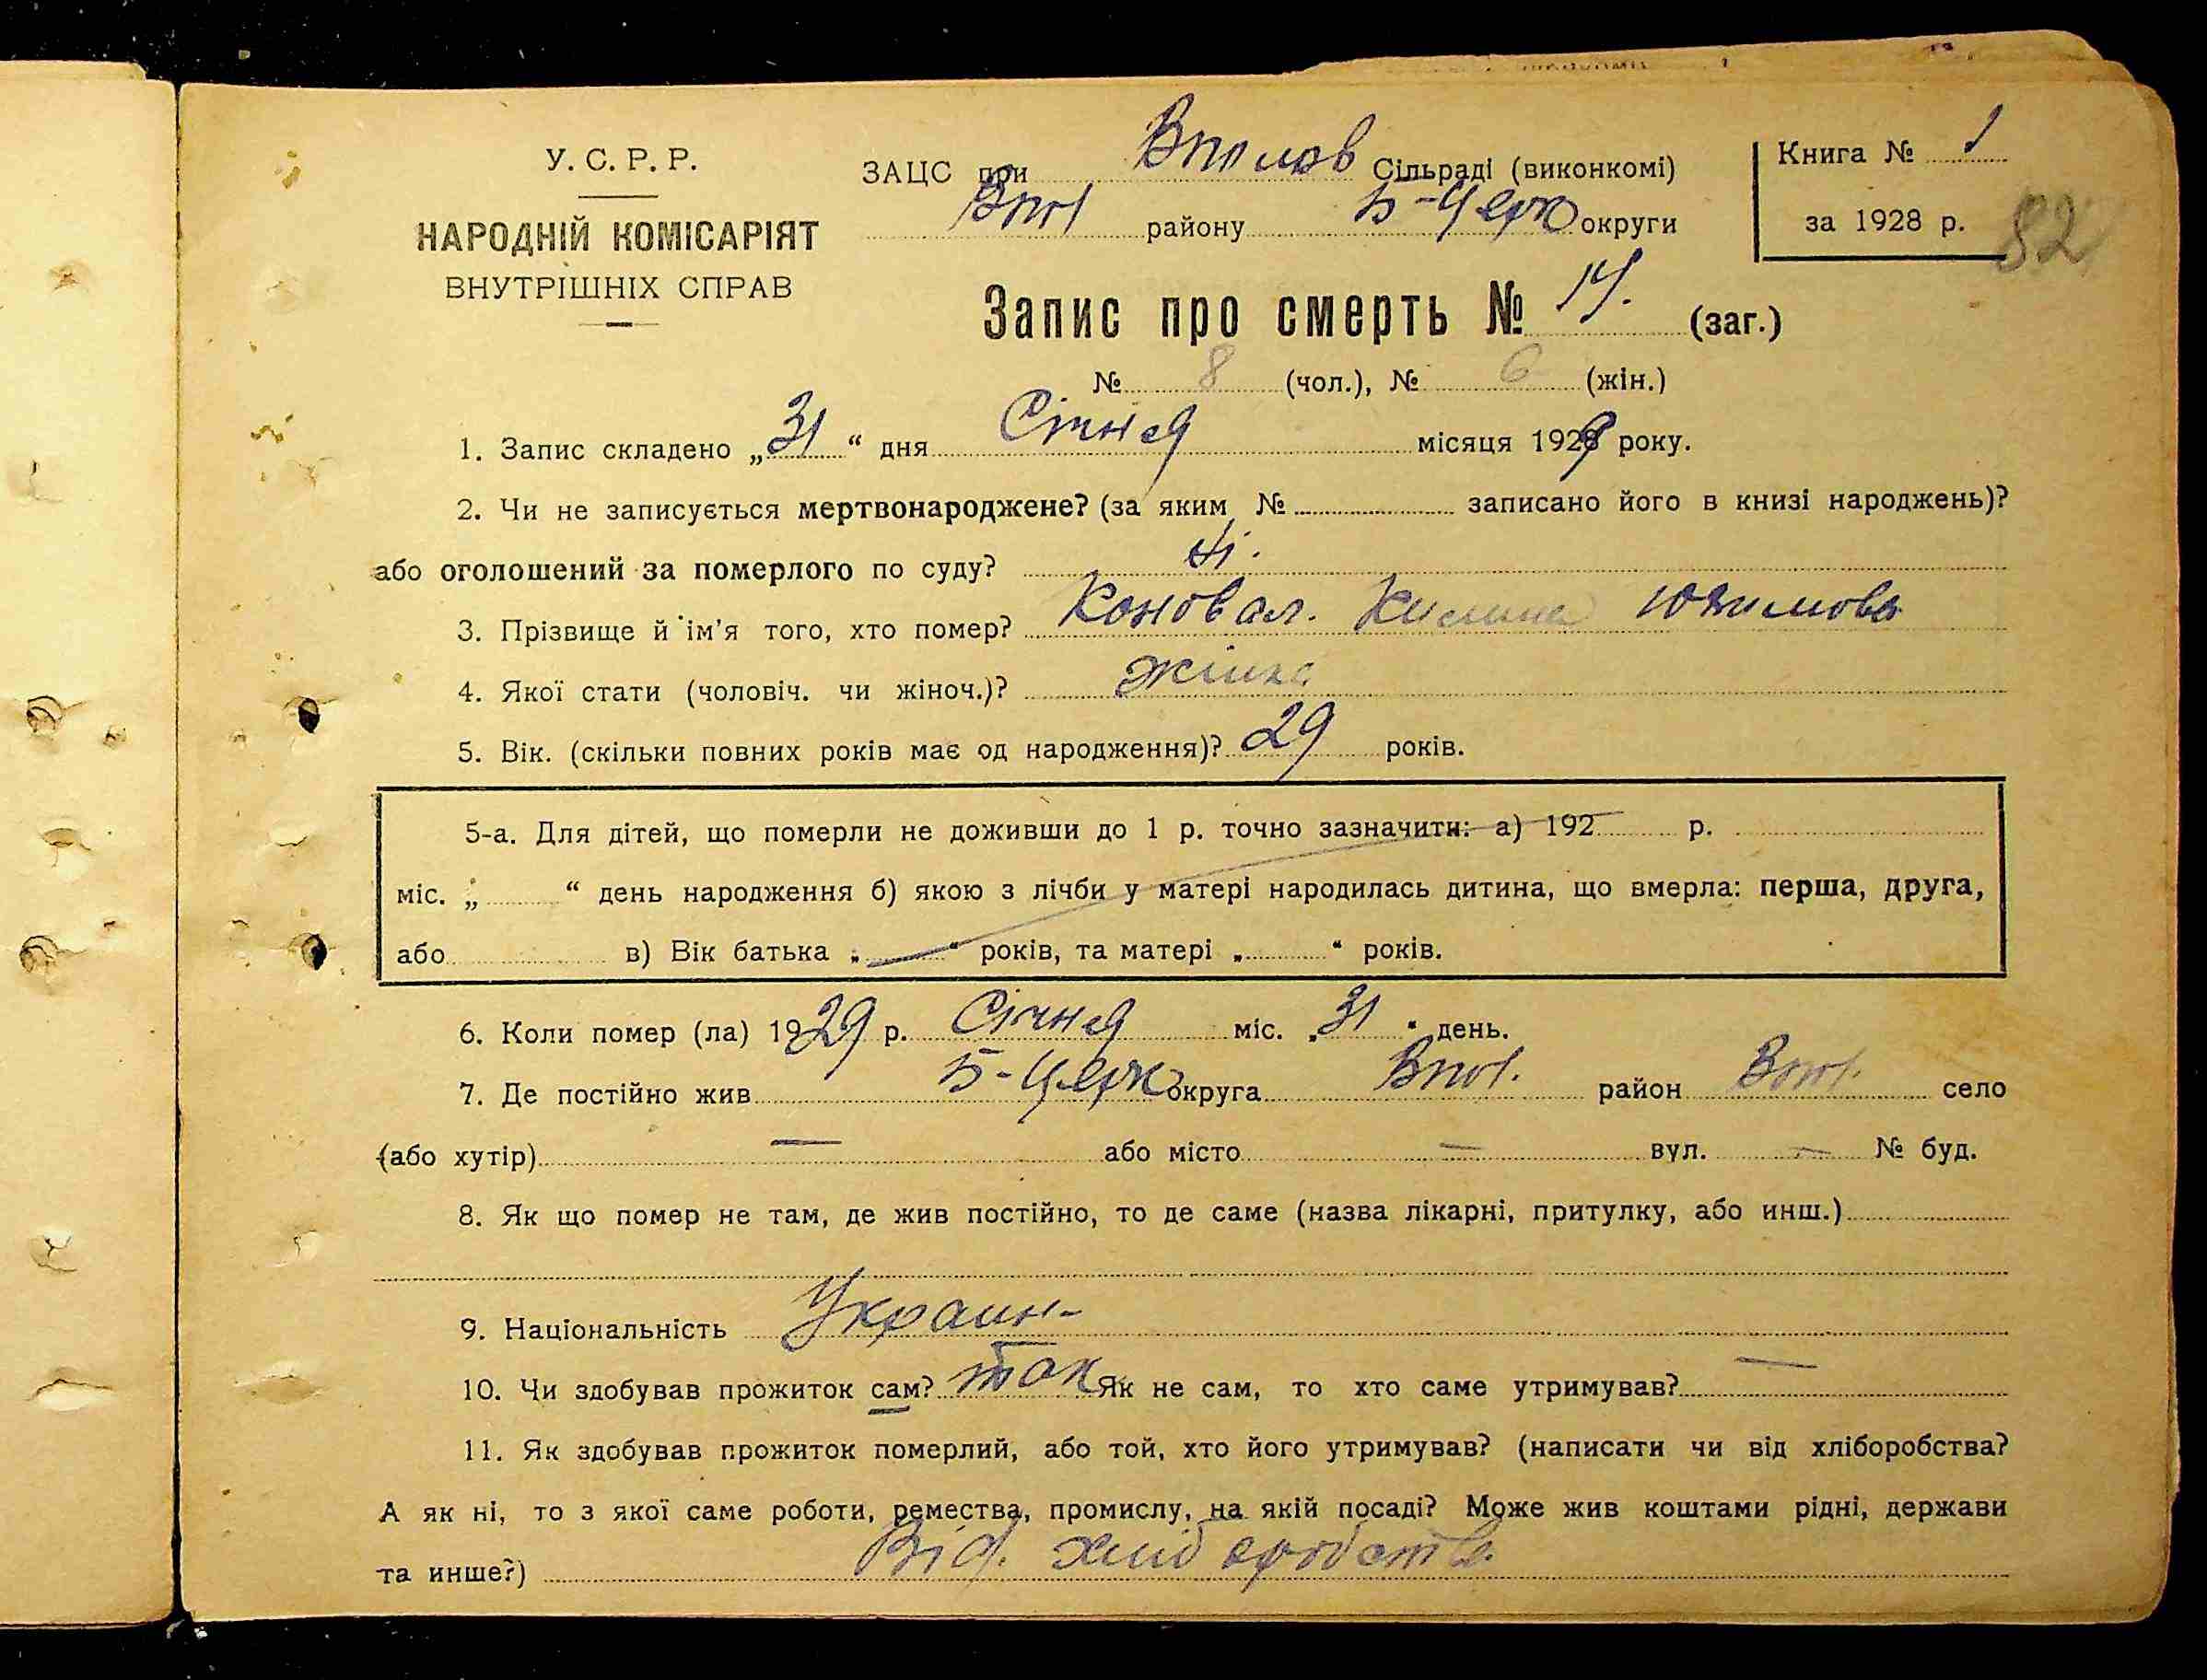 У. С. Р. Р.
НАРОДНІЙ КОМІСАРІЯТ
ВНУТРІШНІХ СПРАВ
ЗАЦС при Сільраді (виконкомі)
району Б-Церк округи
Книга № 1
за 1928 р.
82
Запис про смерть № 14. (заг.)
№ 8 (чол.), № 6 (жін.)
1. Запис складено „31“ дня Січня місяця 1929 року.
2. Чи не записується мертвонароджене? (за яким № записано його в книзі народжень)?
або оголошений за померлого по суду? Ні.
3. Прізвище й ім'я того, хто помер? Коновал. Килина Юхимова
4. Якої стати (чоловіч. чи жіноч.)? жінка
5. Вік. (скільки повних років має од народження)? 29 років.
5-а. Для дітей, що померли не доживши до 1 р. точно зазначити: а) 192 р.
міс. „ “ день народження б) якою з лічби у матері народилась дитина, що вмерла: перша, друга,
або в) Вік батька „ — “ років, та матері „ “ років.
6. Коли помер (ла) 1929 р. Січня міс. „31“ день.
7. Де постійно жив Б-Церк округа район село
(або хутір) — або місто — вул. — № буд.
8. Як що помер не там, де жив постійно, то де саме (назва лікарні, притулку, або инш.)
9. Національність Украин-
10. Чи здобував прожиток сам? так Як не сам, то хто саме утримував? —
11. Як здобував прожиток померлий, або той, хто його утримував? (написати чи від хліборобства?
А як ні, то з якої саме роботи, ремества, промислу, на якій посаді? Може жив коштами рідні, держави
та инше?) Від. хліборобств.